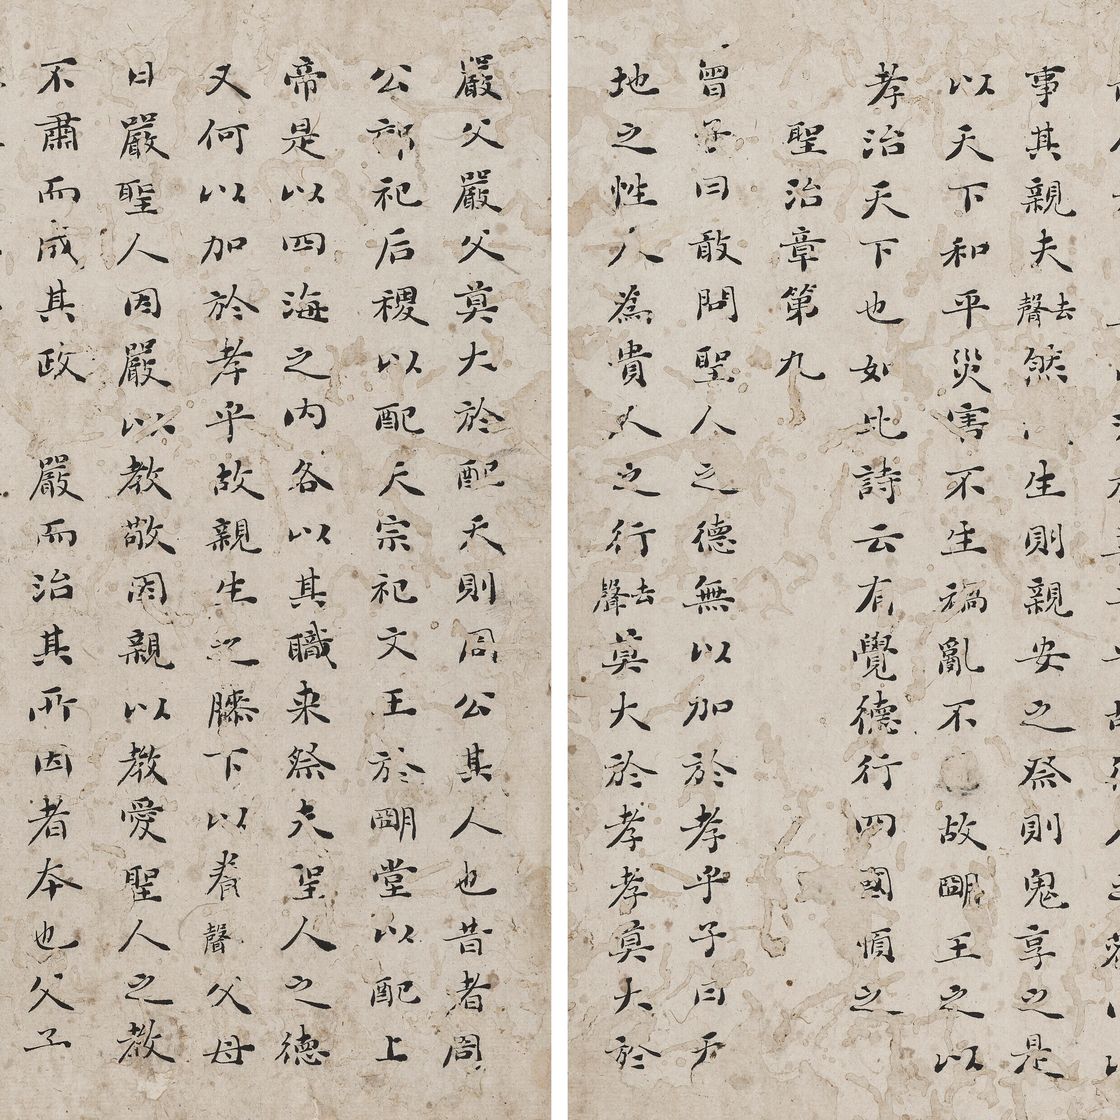 事其親夫去聲然生則親安之祭則鬼享之是
以天下和平災害不生禍亂不故明王之以
孝治天下也如此詩云有覺德行四國順之
聖治章第九
曾子曰敢問聖人之德無以加於孝乎子曰天
地之性人為貴人之行去聲莫大於孝孝莫大於
嚴父嚴父莫大於配天則周公其人也昔者周
公郊祀后稷以配天宗祀文王於明堂以配上
帝是以四海之内各以其職来祭夫聖人之德
又何以加於孝乎故親生之膝下以養聲父母
日嚴聖人因嚴以教敬因親以教愛聖人之教
不肅而成其政嚴而治其所因者本也父子